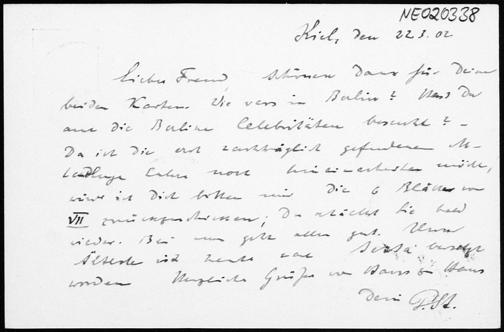 NE020338
Kiel, den 22.3.02
Lieber Freund, schönen Dank für Deine
beiden Karten. Wie wars in Berlin? Hast Du
auch die Berliner Celebritäten besucht? –
Da ich die erst nachträglich gefundenen
noch hineinarbeiten möchte,
würde ich Dich bitten mir die 6 Blätter von
VII zurückzuschicken; Du erhältst sie bald
wieder. Bei uns geht alles gut. Unsre
Älteste ist heute
worden. Herzliche Grüße von Haus zu Haus
Dein P. St.